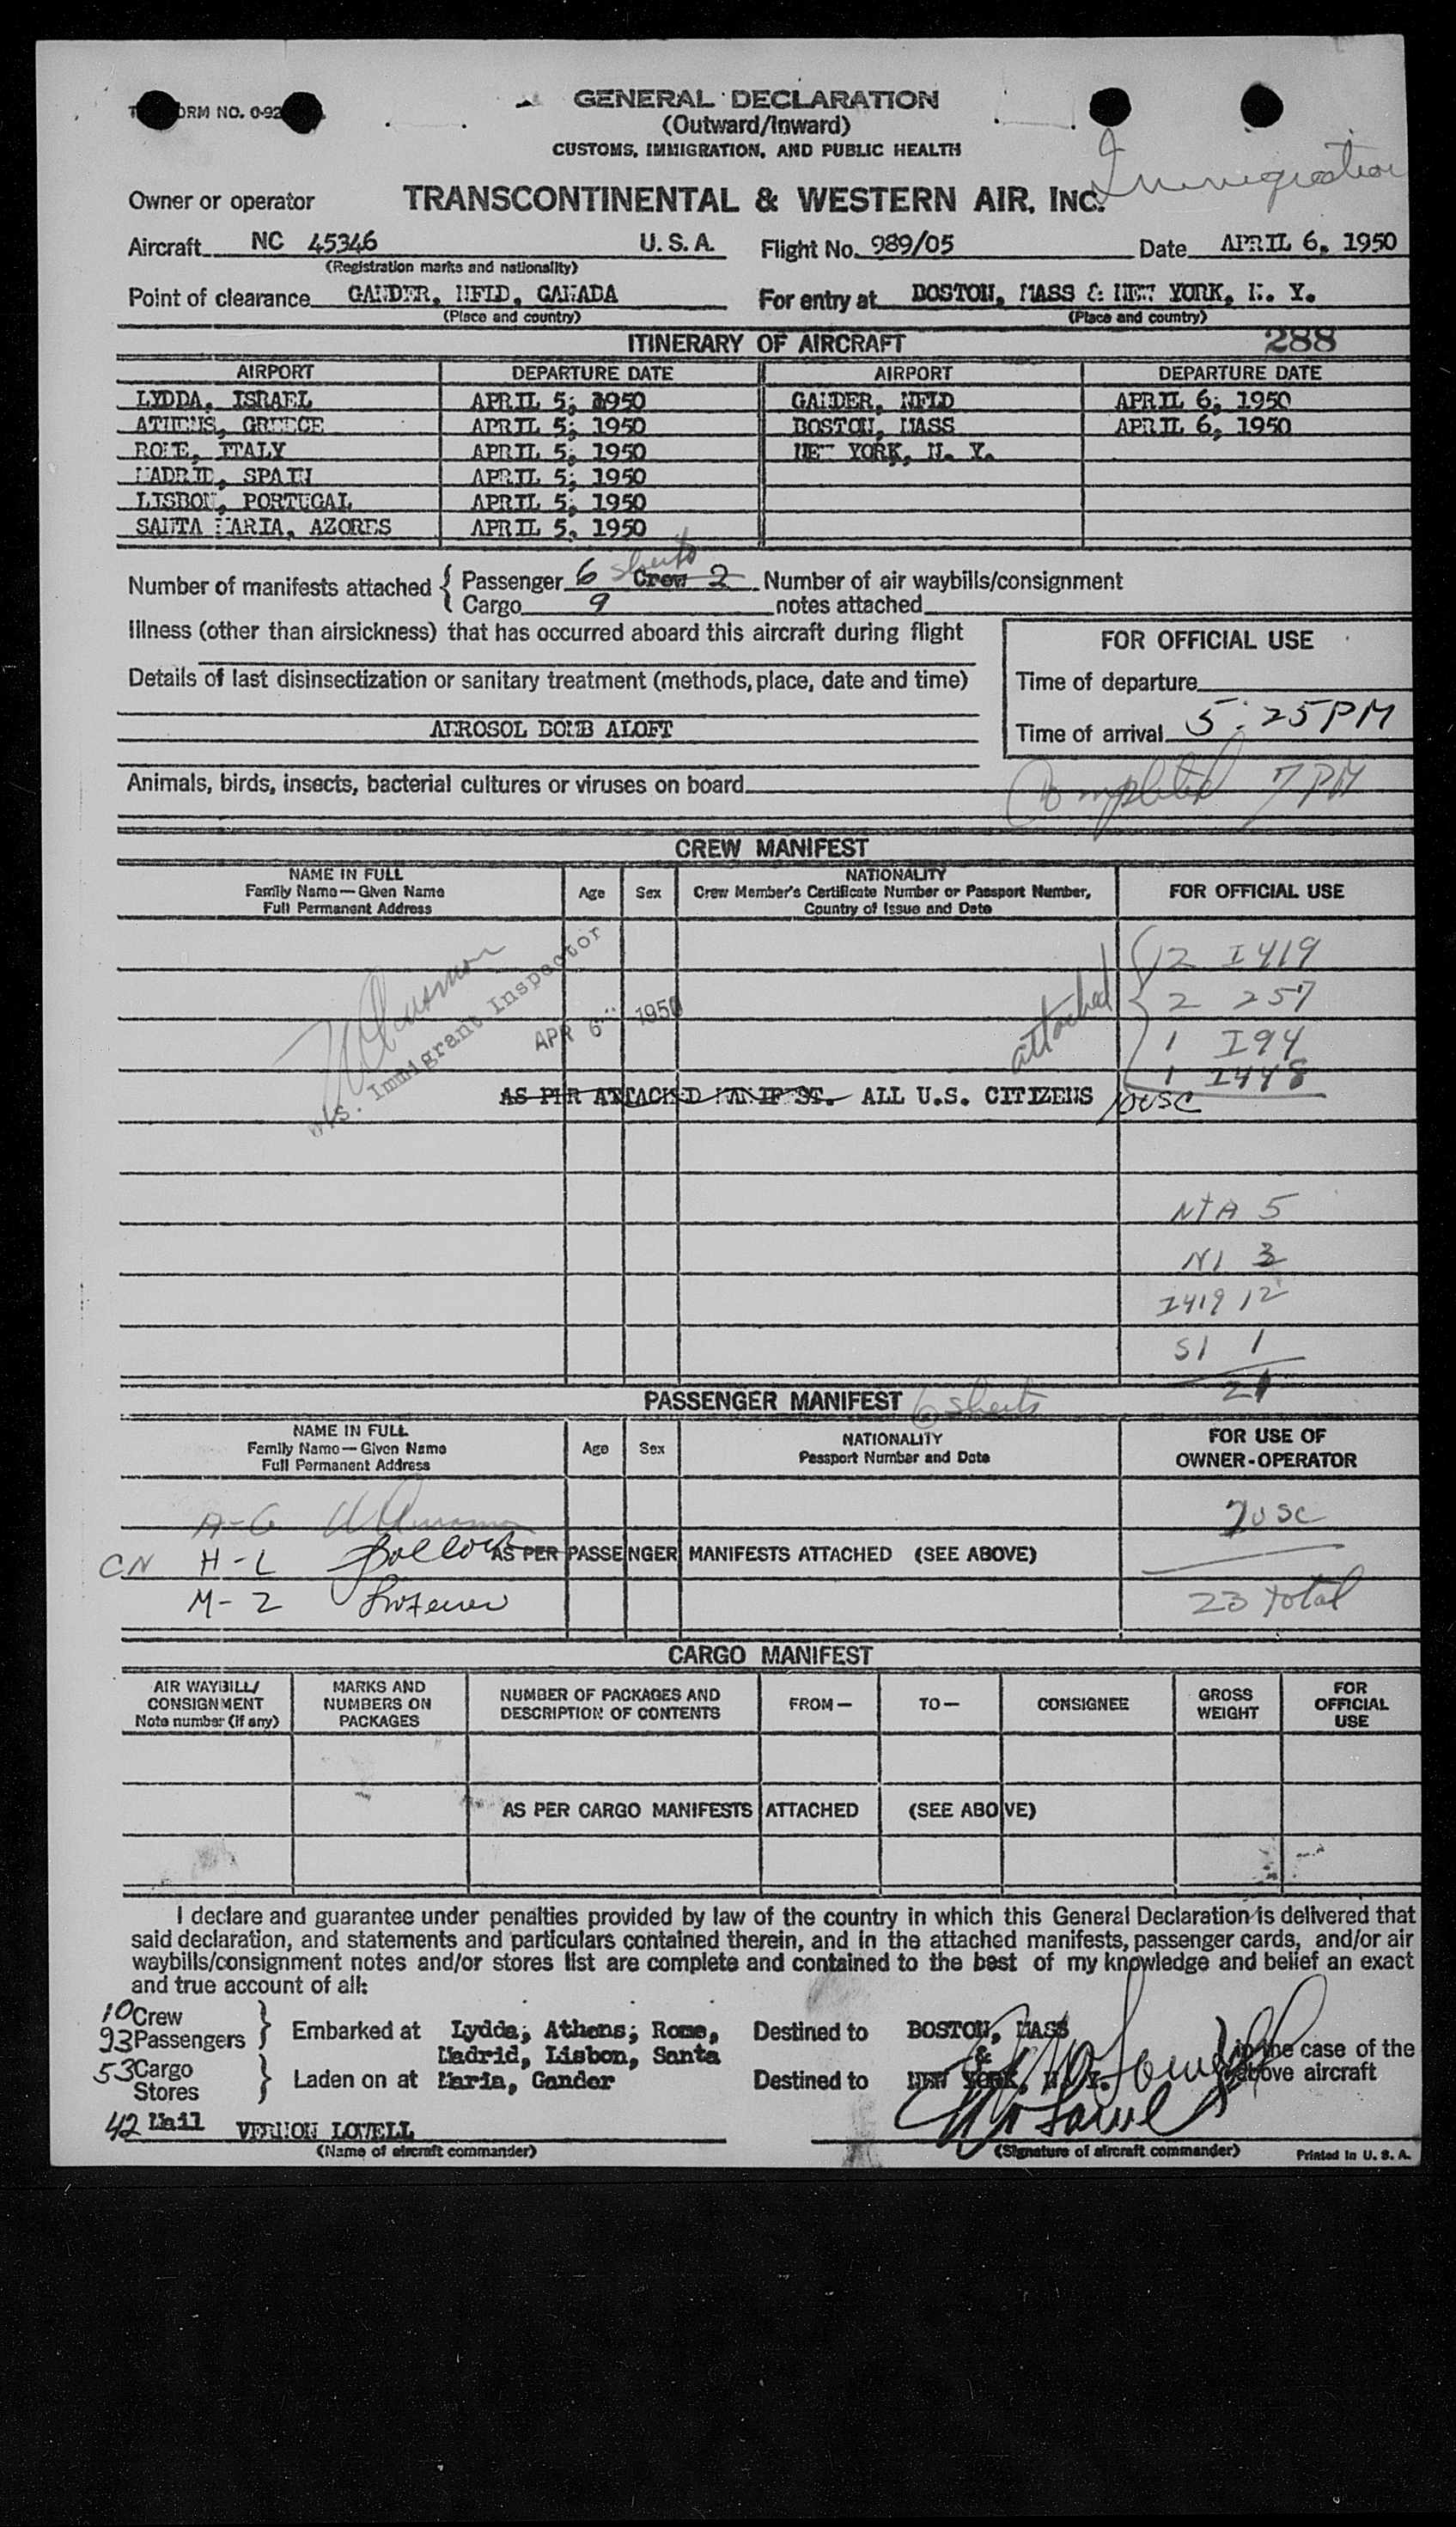 ORM NO. 0-92
GENERAL DECLARATION
(Outward/Inward)
CUSTOMS, IMMIGRATION, AND PUBLIC HEALTH
Immigration
Owner or operator TRANSCONTINENTAL & WESTERN AIR, INC.
Aircraft NC 45346 U.S.A. Flight No. 989/05 Date APRIL 6, 1950
(Registration marks and nationality)
Point of clearance GANDER, NFLD, CANADA For entry at BOSTON, MASS & NEW YORK, N. Y.
(Place and country) (Place and country)
ITINERARY OF AIRCRAFT 288
AIRPORT DEPARTURE DATE AIRPORT DEPARTURE DATE
LYDDA, ISRAEL APRIL 5, 1950 GANDER, NFLD APRIL 6, 1950
ATHENS, GREECE APRIL 5, 1950 BOSTON, MASS APRIL 6, 1950
ROME, ITALY APRIL 5, 1950 NEW YORK, N. Y.
MADRID, SPAIN APRIL 5, 1950
LISBON, PORTUGAL APRIL 5, 1950
SANTA MARIA, AZORES APRIL 5, 1950
Number of manifests attached { Passenger 6 sheets Crew 2 Number of air waybills/consignment
Cargo 9 notes attached
Illness (other than airsickness) that has occurred aboard this aircraft during flight
FOR OFFICIAL USE
Details of last disinsectization or sanitary treatment (methods, place, date and time)
Time of departure
AEROSOL BOMB ALOFT
Time of arrival 5:25PM
Animals, birds, insects, bacterial cultures or viruses on board
Completed 7PM
CREW MANIFEST
NAME IN FULL
Family Name—Given Name
Full Permanent Address
Age
Sex
NATIONALITY
Crew Member's Certificate Number or Passport Number,
Country of Issue and Date
FOR OFFICIAL USE
2 I419
2 257
1 I94
1 I448
attached
Immigrant Inspector
APR 6 1950
AS PER ATTACHED MANIFEST. ALL U.S. CITIZENS 10USC
NTA 5
NI 3
I419 12
SI 1
21
PASSENGER MANIFEST 6 sheets
NAME IN FULL
Family Name—Given Name
Full Permanent Address
Age
Sex
NATIONALITY
Passport Number and Date
FOR USE OF
OWNER-OPERATOR
A-G
USC
CN H-L AS PER PASSENGER MANIFESTS ATTACHED (SEE ABOVE)
M-Z
23 total
CARGO MANIFEST
AIR WAYBILL/
CONSIGNMENT
Note number (if any)
MARKS AND
NUMBERS ON
PACKAGES
NUMBER OF PACKAGES AND
DESCRIPTION OF CONTENTS
FROM—
TO—
CONSIGNEE
GROSS
WEIGHT
FOR
OFFICIAL
USE
AS PER CARGO MANIFESTS ATTACHED (SEE ABOVE)
I declare and guarantee under penalties provided by law of the country in which this General Declaration is delivered that
said declaration, and statements and particulars contained therein, and in the attached manifests, passenger cards, and/or air
waybills/consignment notes and/or stores list are complete and contained to the best of my knowledge and belief an exact
and true account of all:
10 Crew
93 Passengers } Embarked at Lydda, Athens, Rome, Destined to BOSTON, MASS
Madrid, Lisbon, Santa &
in the case of the
53 Cargo
Stores } Laden on at Maria, Gander Destined to NEW YORK, N. Y.
above aircraft
42 Mail VERNON LOWELL
(Name of aircraft commander) (Signature of aircraft commander) Printed in U. S. A.